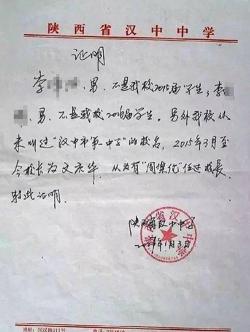 陕西省汉中中学
证明
李 男,不是我校2015届学生,李
,男,不是我校2016届学生。另外我校从
未叫过"汉中市第一中学"的校名,2015年3月至
今校长为文庆华,从没有 任过校长,
特此证明。
陕西省汉中中学